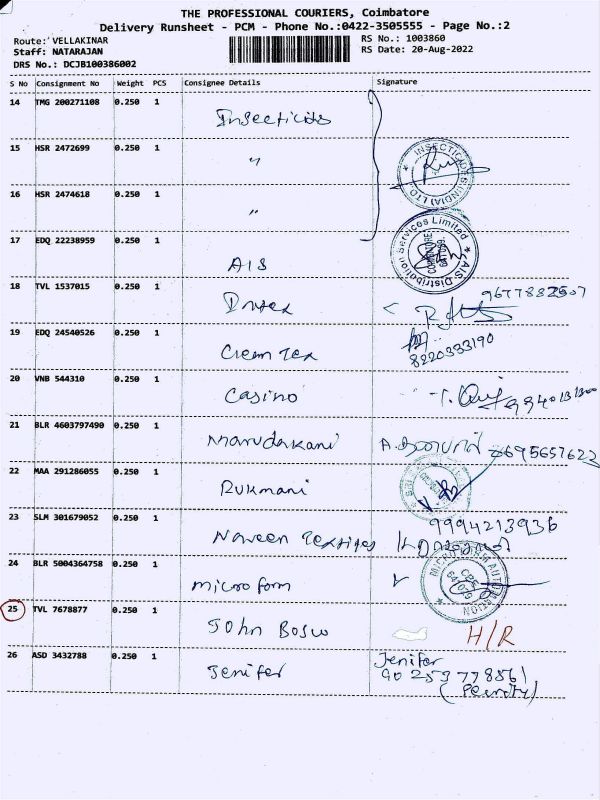 THE PROFESSIONAL COURIERS, Coimbatore
Delivery Runsheet - PCM - Phone No.:0422-3505555 - Page No.:2
Route: VELLAKINAR
RS No.: 1003860
Staff: NATARAJAN
RS Date: 20-Aug-2022
DRS No.: DCJB100386002
S No Consignment No Weight PCS Consignee Details Signature
14 TMG 200271108 0.250 1 Insecticids
15 HSR 2472699 0.250 1 "
INSECTICIDES (INDIA) LTD
16 HSR 2474618 0.250 1 "
17 EDQ 22238959 0.250 1 AIS
AIS Distribution Services Limited
18 TVL 1537015 0.250 1 9677882507
19 EDQ 24540526 0.250 1 Clem Tex 8220333190
20 VNB 544310 0.250 1 Casino
21 BLR 4603797490 0.250 1 Marudakani 8695657622
22 MAA 291286055 0.250 1 Rukmani
23 SLM 301679052 0.250 1 Naveen Textiles 9994213936
24 BLR 5004364758 0.250 1 Micro form
25 TVL 7678877 0.250 1 John Bosco H/R
26 ASD 3432788 0.250 1 Jenifer Jenifer
90 259 778561